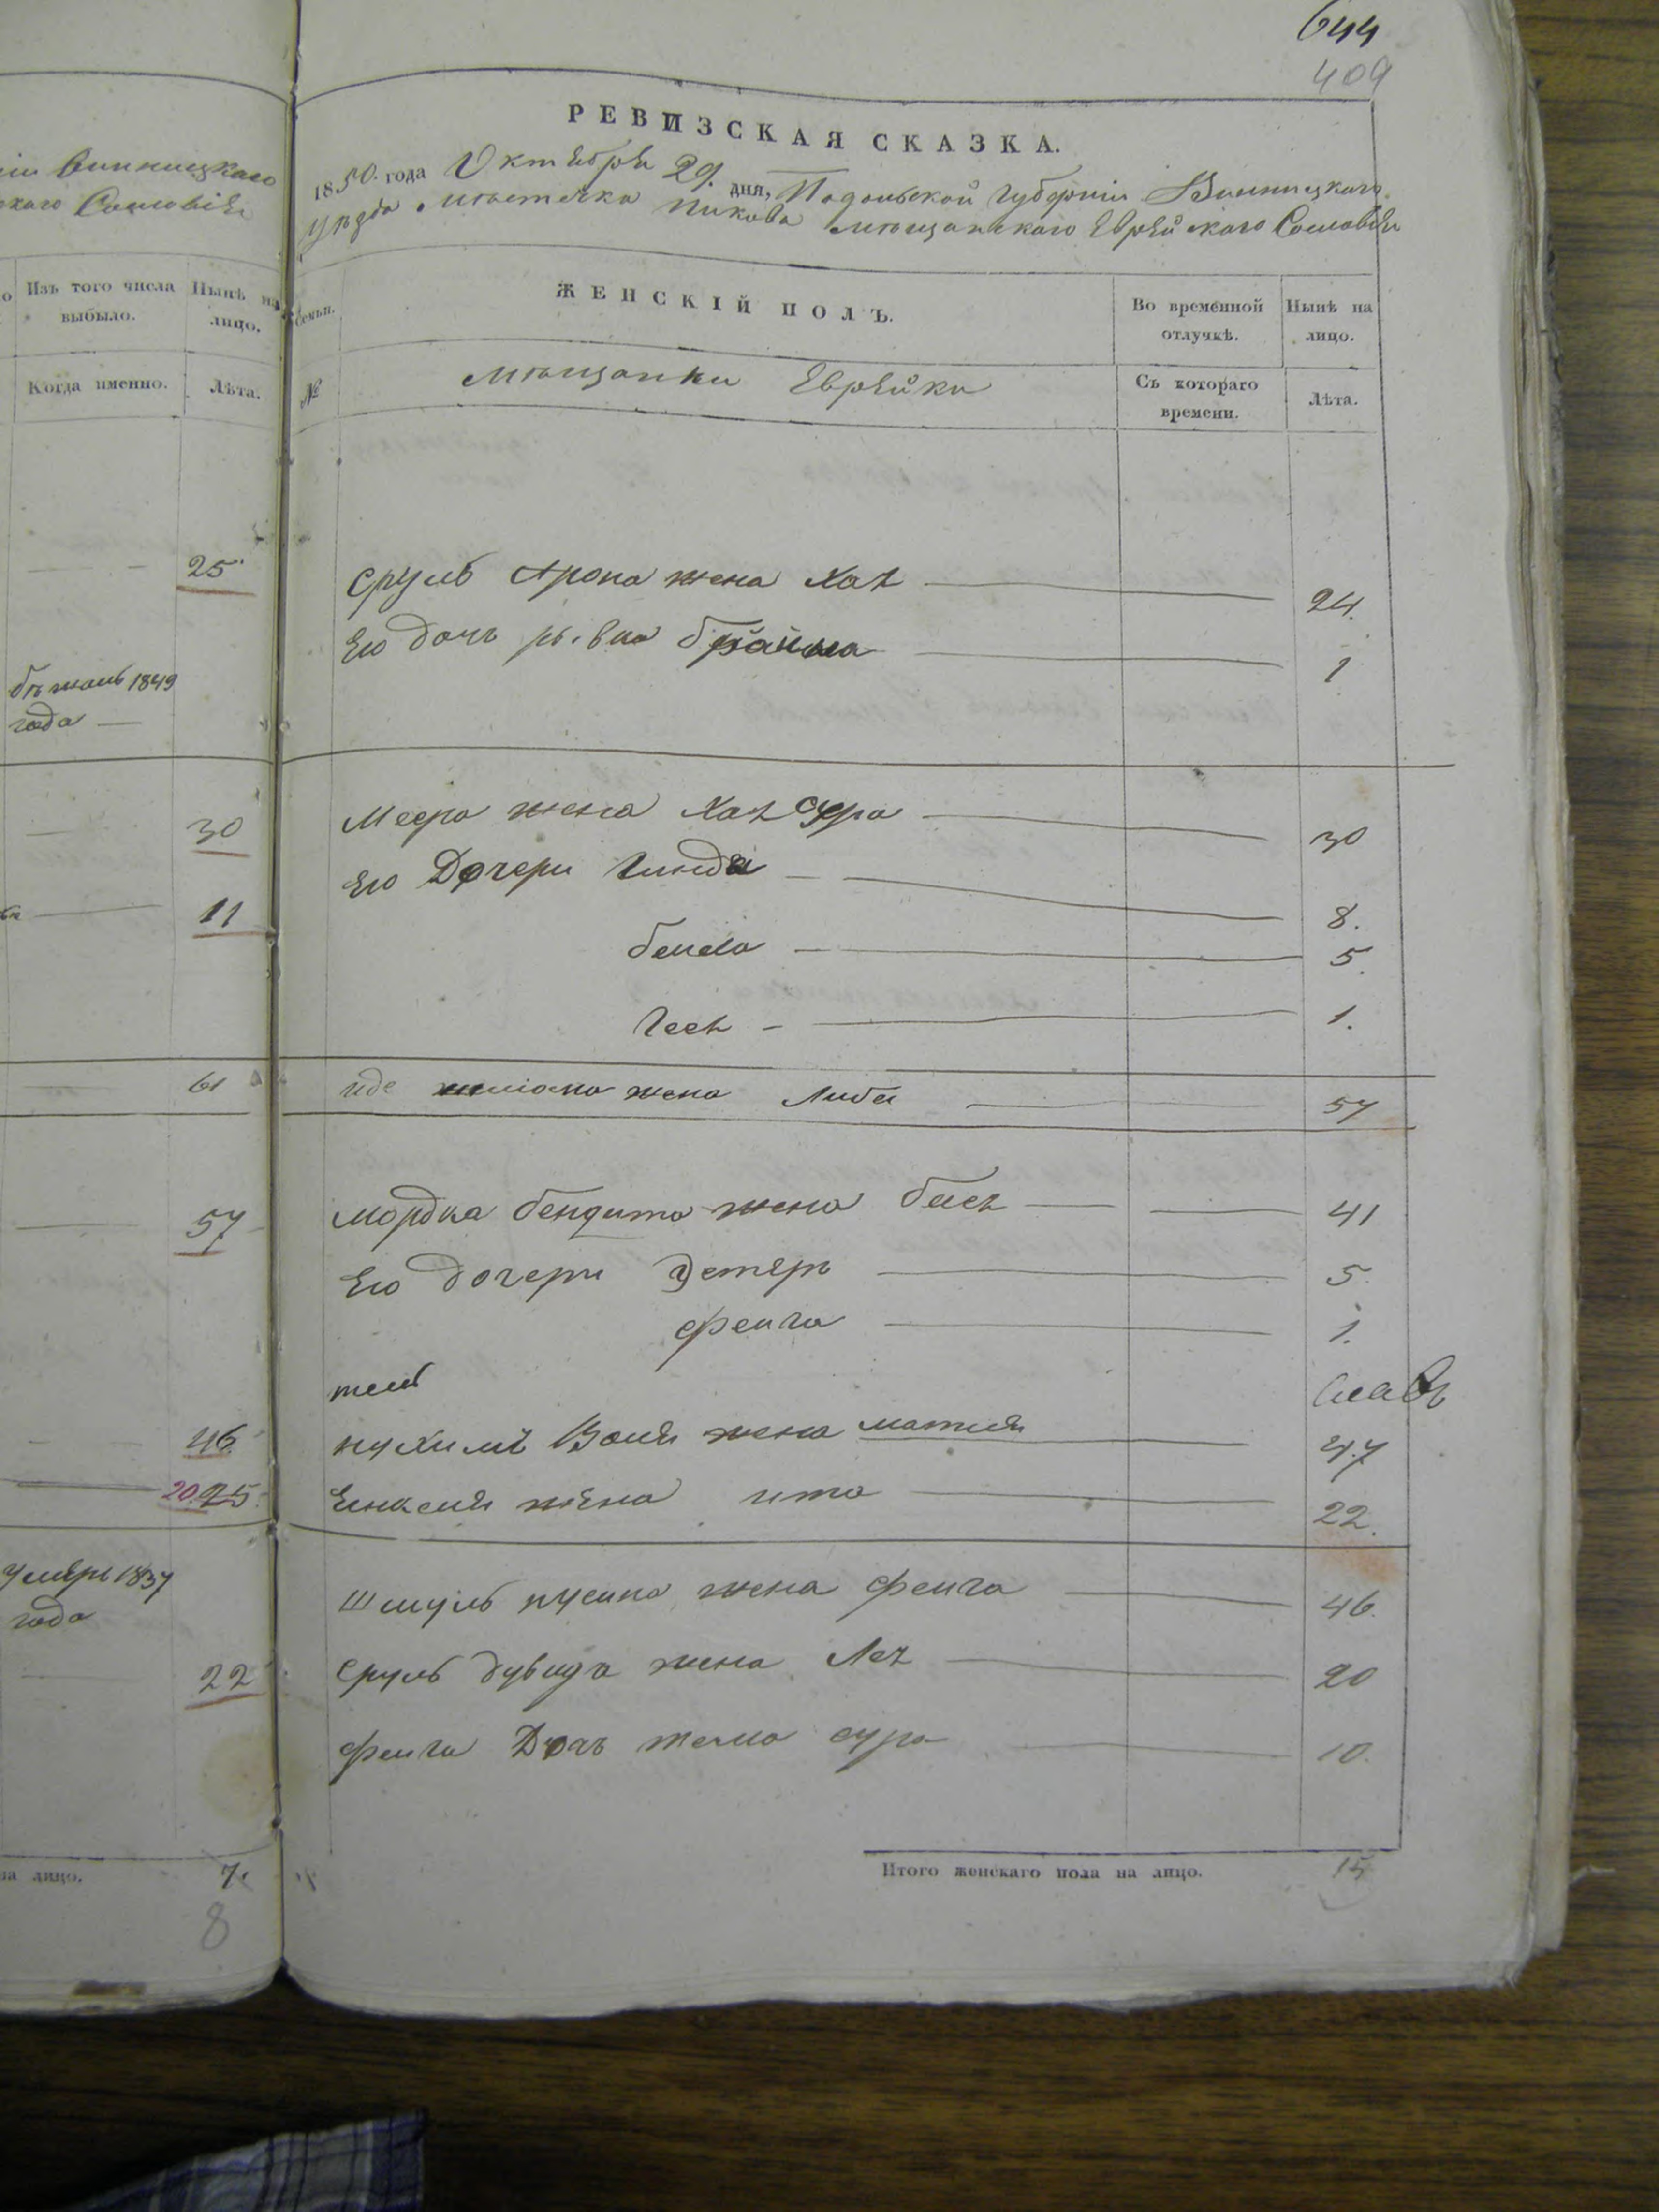 644
409
Винницкаго
РЕВИЗСКАЯ СКАЗКА.
1850 года Октября 29 дня, Подольской Губерніи Винницкаго
уѣзда местечка Пикова мещанскаго Еврейскаго Сословія
Изъ того числа выбыло.
Нынѣ на лицо.
Когда именно.
Лѣта.
Семьи.
№
ЖЕНСКІЙ ПОЛЪ.
Во временной отлучкѣ.
Нынѣ на лицо.
мѣщанки Еврейки
Съ котораго времени.
Лѣта.
25
Сруль Арона жена Хая 24.
Его дочь Брайна 1
1849
года
30
Меера жена Хая Сура 30
Его Дочери Гинда 8.
11
бейла 5.
Гсея 1.
61
жена Либа 57
57
Мордка бендита жена бася 41
Его дочери Эстерь 5.
фейга 1.
46
нухимъ жена матля 47
20 25
Енкеля жена ита 22.
1837
года
Шмуль нусина жена фейга 46.
22
Сруль дувида жена Лея 20
фейга Дочь сура 10.
на лицо. 7.
8
Итого женскаго пола на лицо. 15